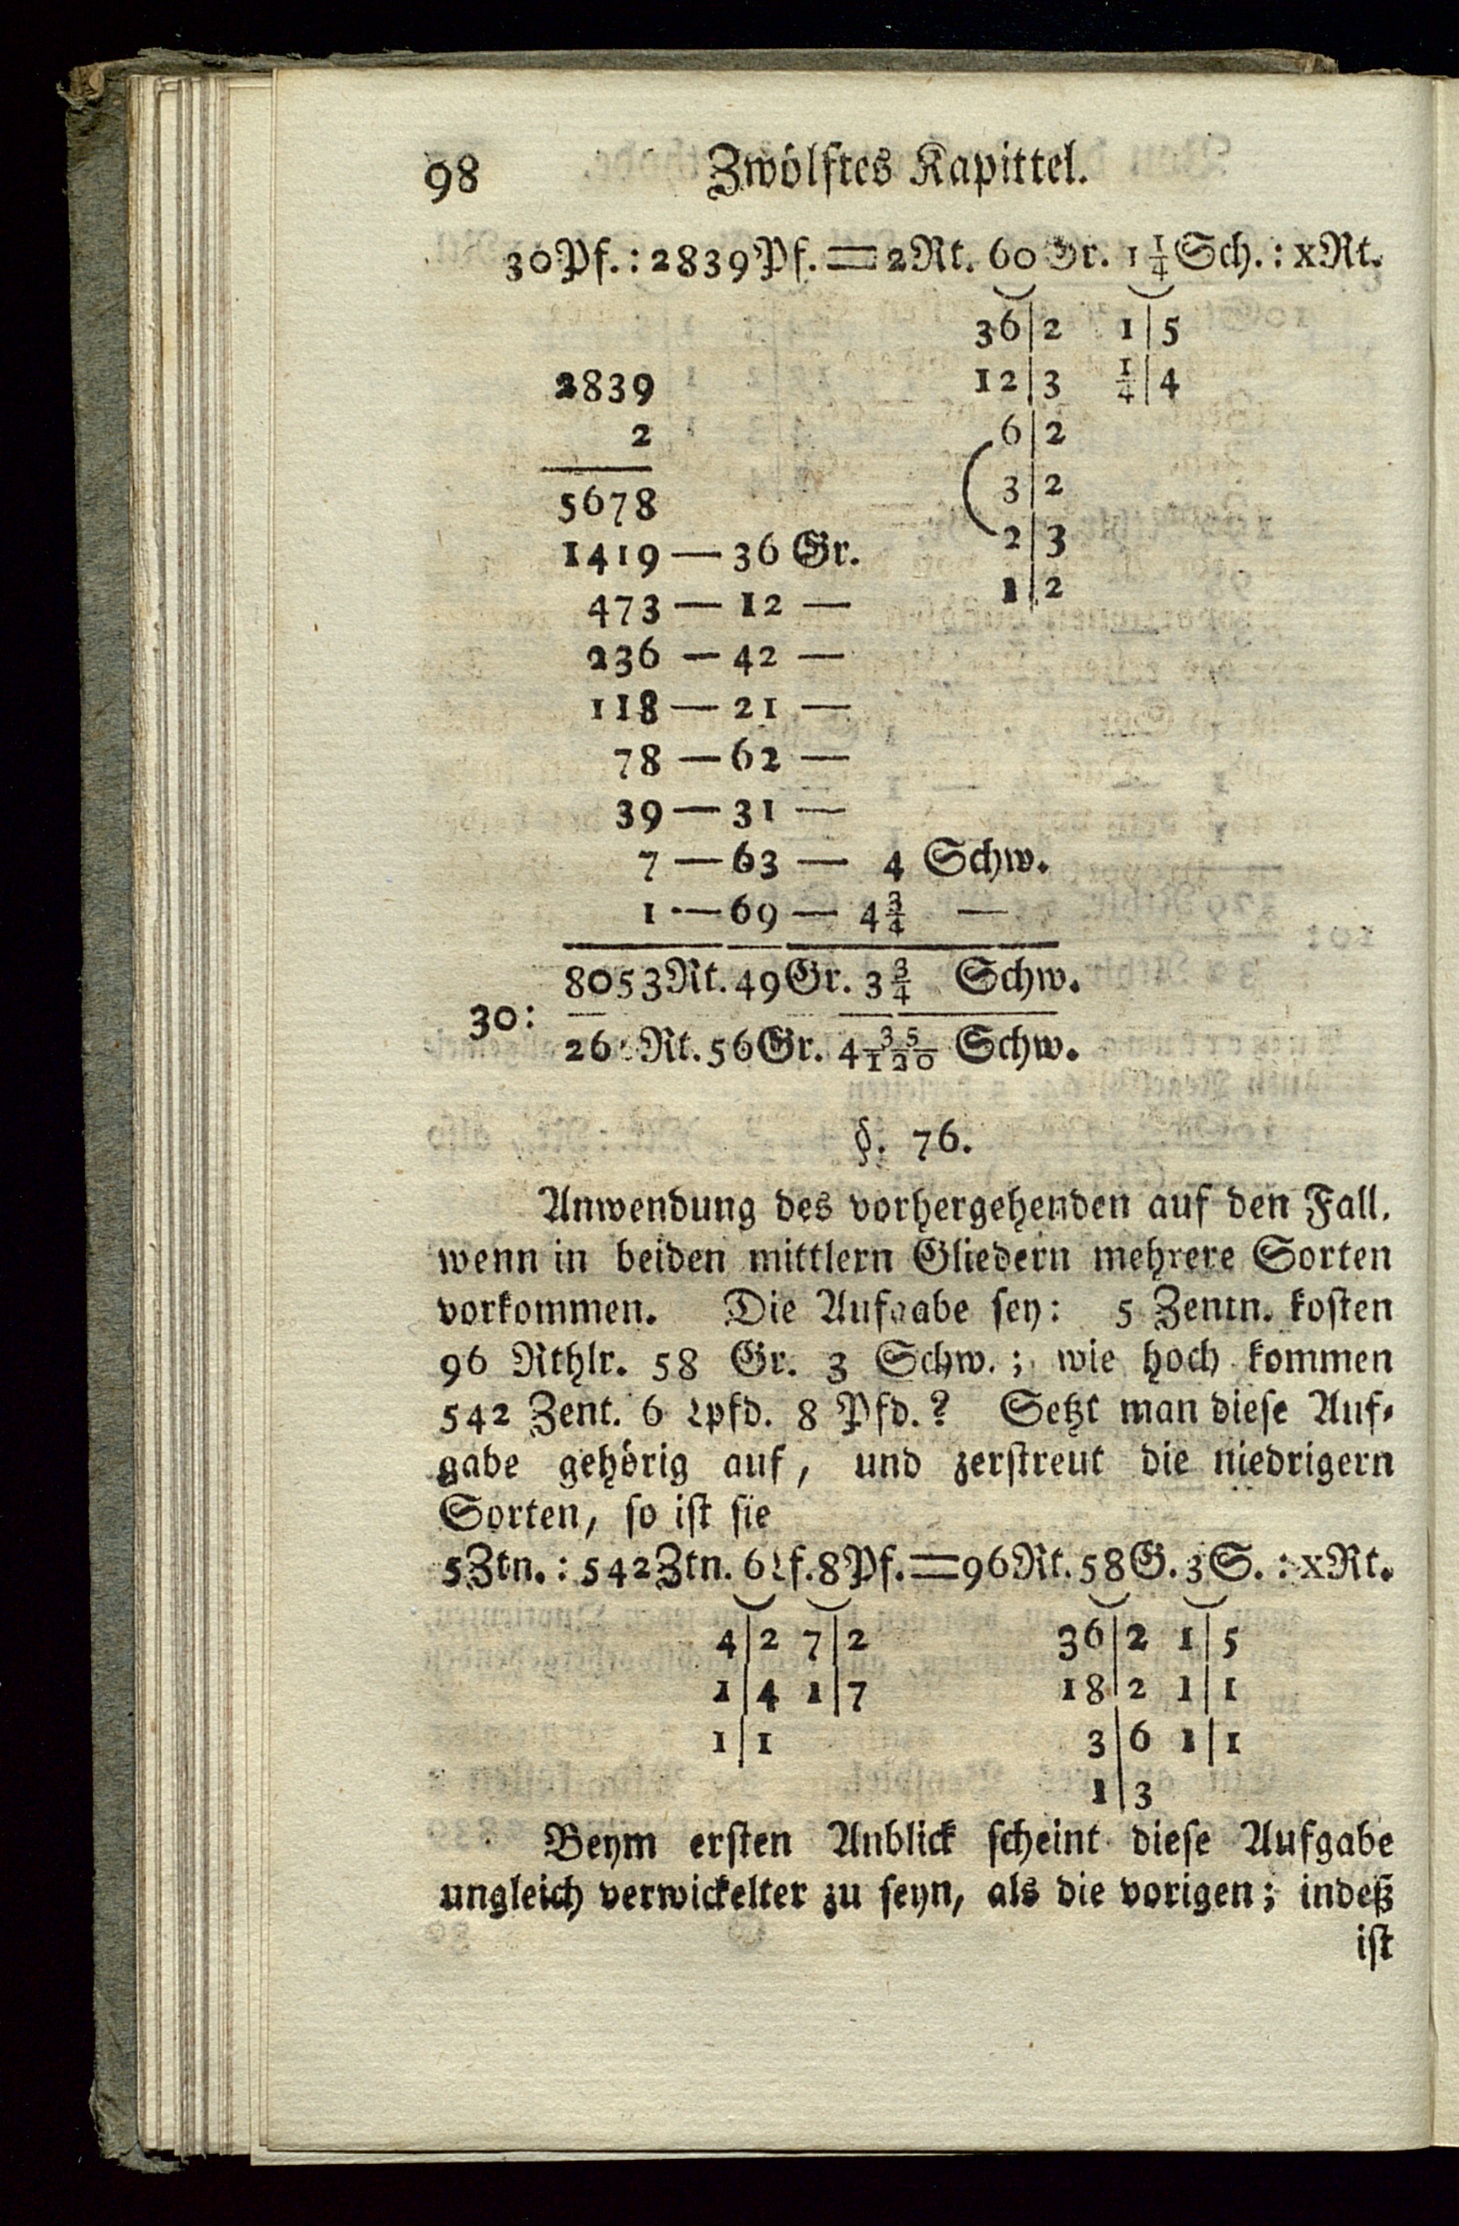 98 Zwölftes Kapittel.
30Pf.:2839Pf.=2Rt. 60 Gr. 1¼Sch.:xRt.
36|2 1|5
2839 12|3 ¼|4
2 6|2
3|2
5678
2|3
1419 — 36 Gr.
1|2
473 — 12 —
236 — 42 —
118 — 21 —
78 — 62 —
39 — 31 —
7 — 63 — 4 Schw.
1 — 69 — 4¾ —
8053Rt. 49Gr. 3¾ Schw.
30:
26 Rt. 56Gr. 4 35/120 Schw.
§. 76.
Anwendung des vorhergehenden auf den Fall,
wenn in beiden mittlern Gliedern mehrere Sorten
vorkommen. Die Aufgabe sey: 5 Zentn. kosten
96 Rthlr. 58 Gr. 3 Schw.; wie hoch kommen
542 Zent. 6 Lpfd. 8 Pfd.? Setzt man diese Auf-
gabe gehörig auf, und zerstreut die niedrigern
Sorten, so ist sie
5Ztn.:542Ztn. 6Lf.8Pf.=96Rt. 58G. 3S.:xRt.
4|2 7|2 36|2 1|5
1|4 1|7 18|2 1|1
1|1 3|6 1|1
1|3
Beym ersten Anblick scheint diese Aufgabe
ungleich verwickelter zu seyn, als die vorigen; indeß
ist